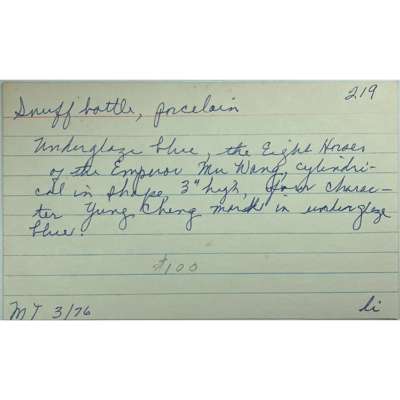 219
Snuff bottle, porcelain
Underglaze blue, the Eight Horses
of the Emperor Mu Wang, cylindri-
cal in shape 3" high, four charac-
ter Yung Cheng mark in underglaze
blue.
$100
MY 3/76 li